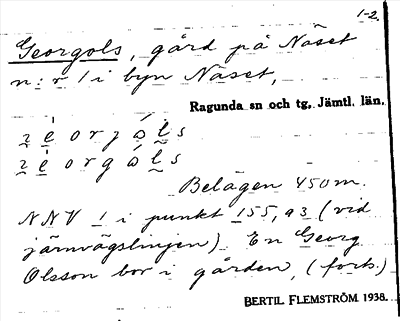 1-2.
Georgols, gård på Näset
n:r 1 i byn Näset,
Ragunda sn och tg, Jämtl. län.
Belägen 450 m.
NNV 1 i punkt 155, a3 (vid
järnvägslinjen). En Georg
Olsson bor i gården, (forts.)
BERTIL FLEMSTRÖM 1938.